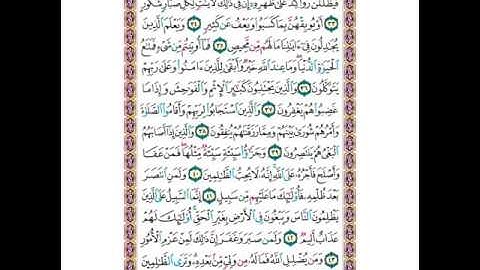 فَيَظْلَلْنَ رَوَاكِدَ عَلَىٰ ظَهْرِهِۦٓ إِنَّ فِى ذَٰلِكَ لَـَٔايَـٰتٍ لِّكُلِّ صَبَّارٍ شَكُورٍ
٣٣ أَوْ يُوبِقْهُنَّ بِمَا كَسَبُوا۟ وَيَعْفُ عَن كَثِيرٍ ٣٤ وَيَعْلَمَ ٱلَّذِينَ
يُجَـٰدِلُونَ فِىٓ ءَايَـٰتِنَا مَا لَهُم مِّن مَّحِيصٍ ٣٥ فَمَآ أُوتِيتُم مِّن شَىْءٍ فَمَتَـٰعُ
ٱلْحَيَوٰةِ ٱلدُّنْيَا ۖ وَمَا عِندَ ٱللَّهِ خَيْرٌ وَأَبْقَىٰ لِلَّذِينَ ءَامَنُوا۟ وَعَلَىٰ رَبِّهِمْ
يَتَوَكَّلُونَ ٣٦ وَٱلَّذِينَ يَجْتَنِبُونَ كَبَـٰٓئِرَ ٱلْإِثْمِ وَٱلْفَوَٰحِشَ وَإِذَا مَا
غَضِبُوا۟ هُمْ يَغْفِرُونَ ٣٧ وَٱلَّذِينَ ٱسْتَجَابُوا۟ لِرَبِّهِمْ وَأَقَامُوا۟ ٱلصَّلَوٰةَ
وَأَمْرُهُمْ شُورَىٰ بَيْنَهُمْ وَمِمَّا رَزَقْنَـٰهُمْ يُنفِقُونَ ٣٨ وَٱلَّذِينَ إِذَآ أَصَابَهُمُ
ٱلْبَغْىُ هُمْ يَنتَصِرُونَ ٣٩ وَجَزَٰٓؤُا۟ سَيِّئَةٍ سَيِّئَةٌ مِّثْلُهَا ۖ فَمَنْ عَفَا
وَأَصْلَحَ فَأَجْرُهُۥ عَلَى ٱللَّهِ ۚ إِنَّهُۥ لَا يُحِبُّ ٱلظَّـٰلِمِينَ ٤٠ وَلَمَنِ ٱنتَصَرَ
بَعْدَ ظُلْمِهِۦ فَأُو۟لَـٰٓئِكَ مَا عَلَيْهِم مِّن سَبِيلٍ ٤١ إِنَّمَا ٱلسَّبِيلُ عَلَى ٱلَّذِينَ
يَظْلِمُونَ ٱلنَّاسَ وَيَبْغُونَ فِى ٱلْأَرْضِ بِغَيْرِ ٱلْحَقِّ ۚ أُو۟لَـٰٓئِكَ لَهُمْ
عَذَابٌ أَلِيمٌ ٤٢ وَلَمَن صَبَرَ وَغَفَرَ إِنَّ ذَٰلِكَ لَمِنْ عَزْمِ ٱلْأُمُورِ
٤٣ وَمَن يُضْلِلِ ٱللَّهُ فَمَا لَهُۥ مِن وَلِىٍّ مِّنۢ بَعْدِهِۦ ۗ وَتَرَى ٱلظَّـٰلِمِينَ